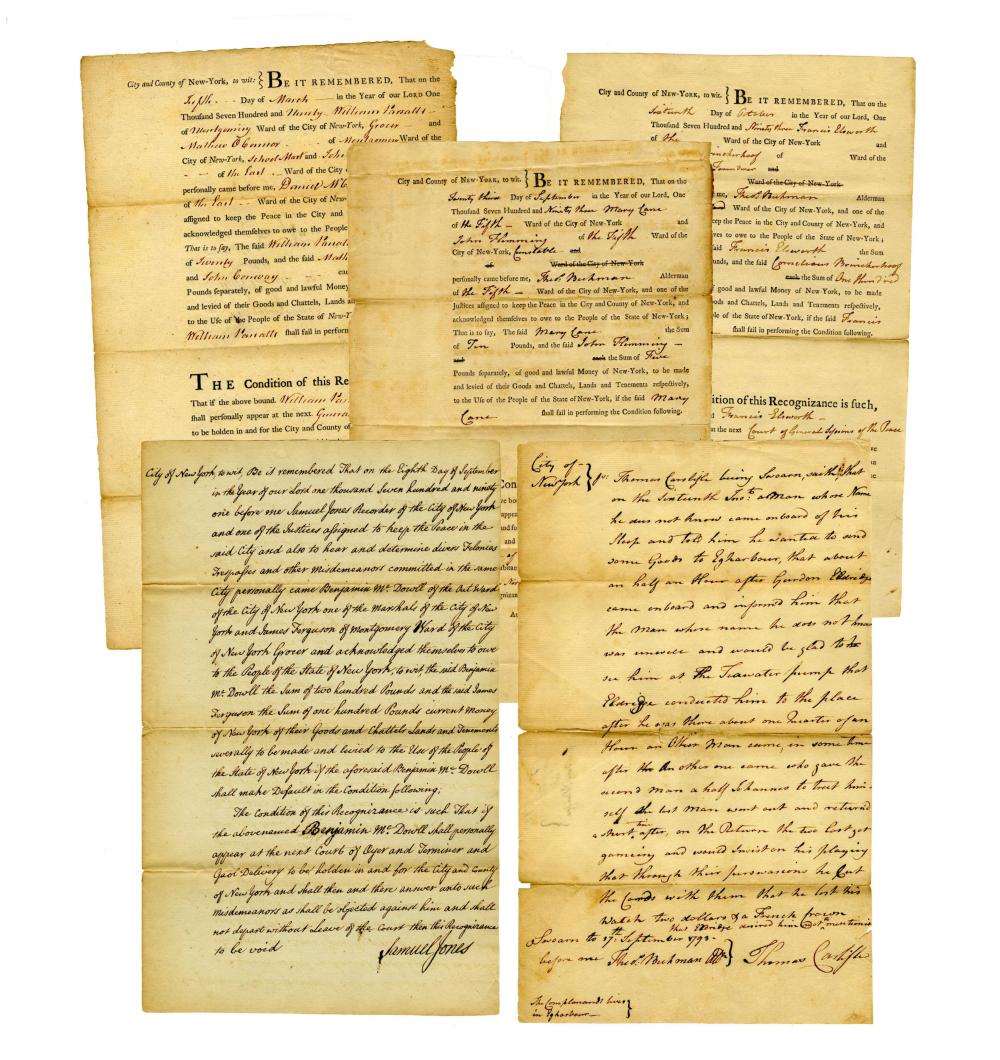 City and County of New-York, to wit: } BE IT REMEMBERED, That on the
Fifth Day of March in the Year of our LORD One
Thousand Seven Hundred and Ninety William
of Montgomery Ward of the City of New-York, Grocer and
Mathew O'Connor of Montgomery Ward of the
City of New-York, School Mast and John
of the East Ward of the City
personally came before me, Daniel
of the East Ward of the City of New-York
assigned to keep the Peace in the City and
acknowledged themselves to owe to the People
That is to say, The said William
of Twenty Pounds, and the said Math
and John Conway
Pounds separately, of good and lawful Money
and levied of their Goods and Chattels, Lands a
to the Use of the People of the State of New-Y
William shall fail in perform
THE Condition of this Re
That if the above bound. William
shall personally appear at the next
to be holden in and for the City and County of
City and County of NEW-YORK, to wit. } BE IT REMEMBERED, That on the
Sixteenth Day of October in the Year of our Lord, One
Thousand Seven Hundred and Ninety three Francis Elsworth
of the Ward of the City of New-York and
of Ward of the
Ward of the City of New-York
Theos. Beekman Alderman
Ward of the City of New-York, and one of the
ep the Peace in the City and County of New-York, and
es to owe to the People of the State of New-York;
aid Francis Elsworth the Sum
unds, and the said Cornelious
each the Sum of One Hundred
good and lawful Money of New-York, to be made
ods and Chattels, Lands and Tenements respectively,
le of the State of New-York, if the said Francis
shall fail in performing the Condition following.
ition of this Recognizance is such,
Francis Elsworth
at the next Court of General Sessions of the Peace
City and County of NEW-YORK, to wit. } BE IT REMEMBERED, That on the
Twenty third Day of September in the Year of our Lord, One
Thousand Seven Hundred and Ninety three Mary Cane
of the Fifth Ward of the City of New-York and
John Flemming of the Fifth Ward of the
City of New-York, Constable and
of Ward of the City of New-York
personally came before me, Theos. Beekman Alderman
of the Fifth Ward of the City of New-York, and one of the
Justices assigned to keep the Peace in the City and County of New-York, and
acknowledged themselves to owe to the People of the State of New-York;
That is to say, The said Mary Cane the Sum
of Ten Pounds, and the said John Flemming
and each the Sum of Five
Pounds separately, of good and lawful Money of New-York, to be made
and levied of their Goods and Chattels, Lands and Tenements respectively,
to the Use of the People of the State of New-York, if the said Mary
Cane shall fail in performing the Condition following.
City of New York, to wit, Be it remembered That on the Eighth Day of September
in the Year of our Lord one thousand Seven hundred and ninety
one before me Samuel Jones Recorder of the City of New York
and one of the Justices assigned to keep the Peace in the
said City and also to hear and determine divers Felonies
Trespasses and other Misdemeanors committed in the same
City personally came Benjamin Mc. Dowll of the Out Ward
of the City of New York one of the Marshals of the City of New
York and James Ferguson of Montgomery Ward of the City
of New York Grocer and acknowledged themselves to owe
to the People of the State of New York, to wit, the said Benjamin
Mc. Dowll the Sum of two hundred Pounds and the said James
Ferguson the Sum of one hundred Pounds current Money
of New York of their Goods and Chattels Lands and Tenements
severally to be made and levied to the Use of the People of
the State of New York if the aforesaid Benjamin Mc. Dowll
shall make Default in the Condition following;
The Condition of this Recognizance is such That if
the abovenamed Benjamin Mc. Dowll shall personally
appear at the next Court of Oyer and Terminer and
Gaol Delivery to be holden in and for the City and County
of New York and shall then and there answer unto such
misdemeanors as shall be objected against him and shall
not depart without Leave of the Court then this Recognizance
to be void
Samuel Jones
City of
New York } ss: Thomas Carslisle being Sworn, saith, that
on the Sixteenth Inst. a Man whose Name
he does not know came onboard of his
Sloop and told him he wanted to send
some Goods to Eggharbour, that about
an half an Hour after Gordon Eldridge
came onboard and informed him that
the Man whose name he does not know
was unwell and would be glad to
see him at the Teawater pump that
Eldridge conducted him to the place
after he was there about one Quarter of an
Hour an Other Man came, in some time
after An other one came who gave the
second man a half Johannes to treat him-
self the last man went out and returned
a short time after, on the Return the two last got
gameing and would insist on his playing
that through their perswasions he Cut
the Cards with them that he lost his
Watch two dollars & a French Crown
that Eldridge desired him not to mention it
Sworn to 17th. September 1793.
before me Theos. Beekman } Thomas Carslisle
The Complainants lives
in Eggharbour }